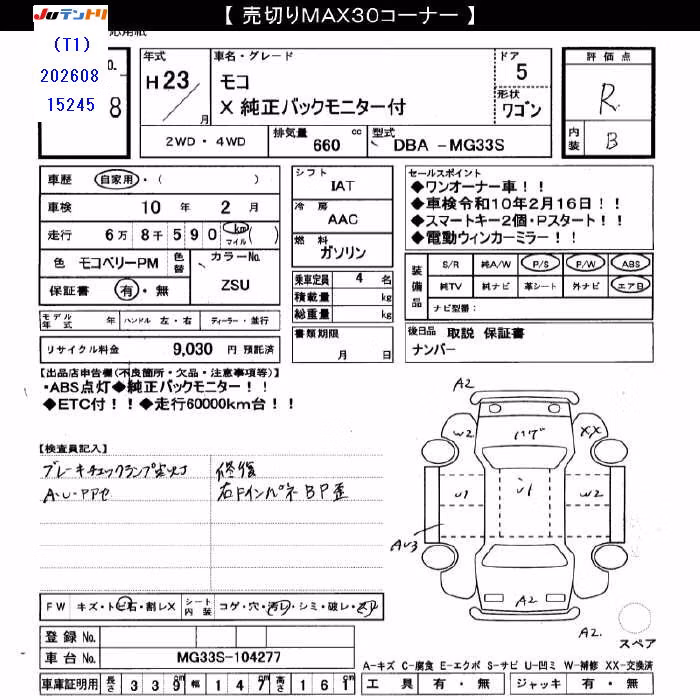 【 売切りMAX30コーナー 】
JUテントリ
(T1)
202608
15245
No.
8
年式
H 23
月
車名・グレード
モコ
X 純正バックモニター付
ドア
5
形状
ワゴン
評 価 点
R
内装
B
2WD・4WD
排気量
660 cc
型式
DBA -MG33S
車歴
自家用・( )
車検
10 年 2 月
走行
6万 8千 5 9 0 km マイル ( )
色
モコベリーPM
色替
カラーNo.
ZSU
保証書
有・無
モデル年式
年
ハンドル 左・右
ディーラー・並行
リサイクル料金 9,030 円 預託済
シフト
IAT
冷房
AAC
燃料
ガソリン
乗車定員 4 名
積載量 kg
総重量 kg
書類期限
月 日
セールスポイント
◆ワンオーナー車！！
◆車検令和10年2月16日！！
◆スマートキー2個・Pスタート！！
◆電動ウィンカーミラー！！
装備品
S/R 純A/W P/S P/W ABS
純TV 純ナビ 革シート 外ナビ エアB
ナビ型番：
後日品 取説 保証書
ナンバー
【出品店申告欄(不良箇所・欠品・注意事項等)】
・ABS点灯◆純正バックモニター！！
◆ETC付！！◆走行60000km台！！
【検査員記入】
修復
右Fインパネ BP歪
A2
W2
XX
U1
U1
W2
AU3
A2
A2.
スペア
FW キズ・トビ石・割レX
シート内装 コゲ・穴・汚レ・シミ・破レ・スレ
登録 No.
車台 No. MG33S-104277
車庫証明用 長さ 3 3 9 cm 幅 1 4 7 cm 高さ 1 6 1 cm
A-キズ C-腐食 E-エクボ S-サビ U-凹ミ W-補修 XX-交換済
工具 有・無 ジャッキ 有・無